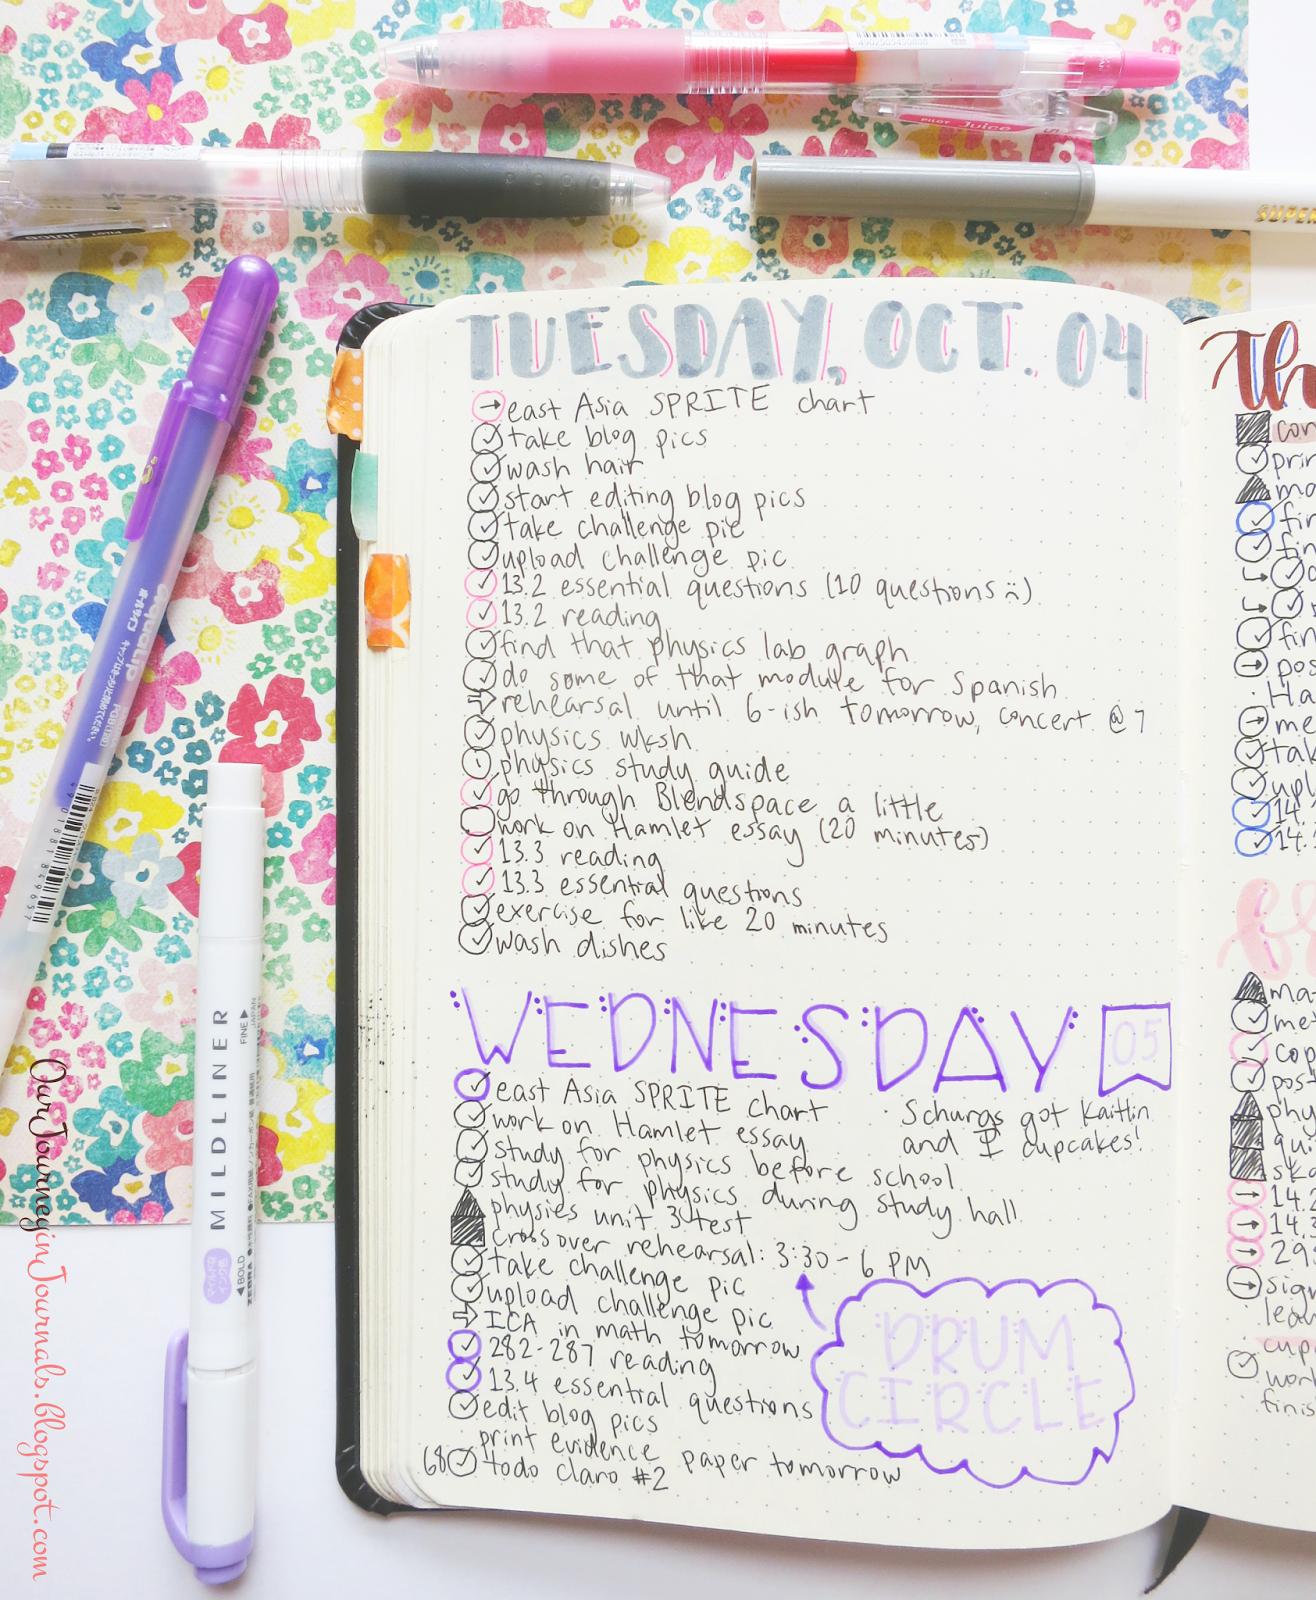 PILOT Juice
SUPER
TUESDAY, OCT. 04
east Asia SPRITE chart
take blog pics
wash hair
start editing blog pics
take challenge pic
upload challenge pic
13.2 essential questions (10 questions :()
13.2 reading
find that physics lab graph
do some of that module for Spanish
rehearsal until 6-ish tomorrow, concert @ 7
physics wksh
physics study guide
go through Blendspace a little
work on Hamlet essay (20 minutes)
13.3 reading
13.3 essential questions
exercise for like 20 minutes
wash dishes
WEDNESDAY 05
east Asia SPRITE chart
work on Hamlet essay
· Schurgs got Kaitlin
and I cupcakes!
study for physics before school
study for physics during study hall
physics unit 3 test
crossover rehearsal: 3:30 - 6 PM
take challenge pic
upload challenge pic
ICA in math tomorrow
282-287 reading
13.4 essential questions
edit blog pics
print evidence paper tomorrow
68 todo claro #2
DRUM
CIRCLE
Th
cor
prin
ma
fir
fin
fin
pos
· Ha
me
tak
upl
14.
14.1
ma
met
cop
post
phy
qui
ska
14.2
14.3
293
sign
leav
cup
work
finis
MILDLINER
FINE
JAPAN
BOLD
ZEBRA
4901881849657
OurJourneyinJournals.blogspot.com